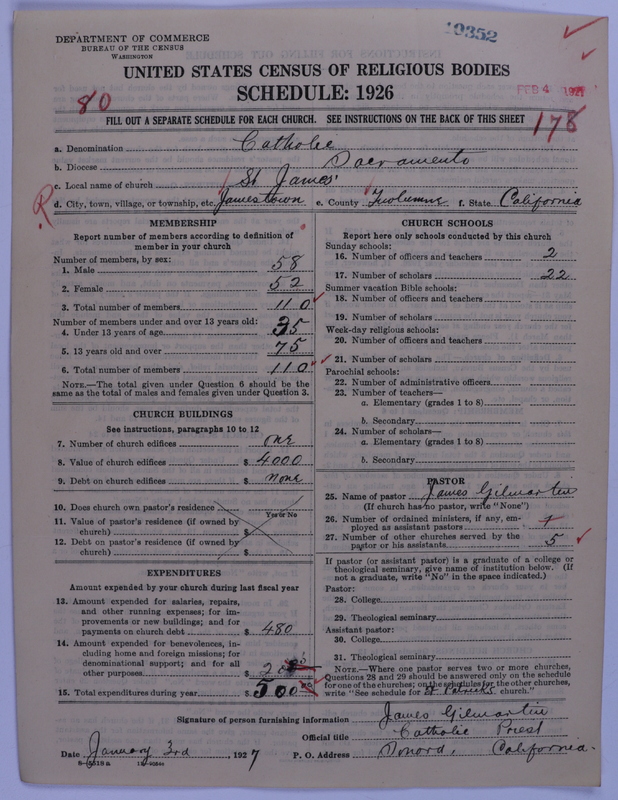 DEPARTMENT OF COMMERCE
BUREAU OF THE CENSUS
WASHINGTON
10352
UNITED STATES CENSUS OF RELIGIOUS BODIES
SCHEDULE: 1926
FEB 4 1927
80
178
FILL OUT A SEPARATE SCHEDULE FOR EACH CHURCH. SEE INSTRUCTIONS ON THE BACK OF THIS SHEET
a. Denomination Catholic
b. Diocese Sacramento
c. Local name of church St James'
d. City, town, village, or township, etc. Jamestown e. County Tuolumne f. State California
R
MEMBERSHIP
Report number of members according to definition of
member in your church
Number of members, by sex:
1. Male 58
2. Female 52
3. Total number of members 110
Number of members under and over 13 years old:
4. Under 13 years of age 35
5. 13 years old and over 75
6. Total number of members 110
NOTE.—The total given under Question 6 should be the
same as the total of males and females given under Question 3.
CHURCH BUILDINGS
See instructions, paragraphs 10 to 12
7. Number of church edifices one
8. Value of church edifices $ 4000
9. Debt on church edifices $ none
10. Does church own pastor's residence
Yes or No
11. Value of pastor's residence (if owned by
church) $
12. Debt on pastor's residence (if owned by
church) $
EXPENDITURES
Amount expended by your church during last fiscal year
13. Amount expended for salaries, repairs,
and other running expenses; for im-
provements or new buildings; and for
payments on church debt $ 480
14. Amount expended for benevolences, in-
cluding home and foreign missions; for
denominational support; and for all
other purposes $
15. Total expenditures during year $ 500
CHURCH SCHOOLS
Report here only schools conducted by this church
Sunday schools:
16. Number of officers and teachers 2
17. Number of scholars 22
Summer vacation Bible schools:
18. Number of officers and teachers
19. Number of scholars
Week-day religious schools:
20. Number of officers and teachers
21. Number of scholars
Parochial schools:
22. Number of administrative officers
23. Number of teachers—
a. Elementary (grades 1 to 8)
b. Secondary
24. Number of scholars—
a. Elementary (grades 1 to 8)
b. Secondary
PASTOR
25. Name of pastor James Gilmartin
(If church has no pastor, write "None")
26. Number of ordained ministers, if any, em-
ployed as assistant pastors 1
27. Number of other churches served by the
pastor or his assistants 5
If pastor (or assistant pastor) is a graduate of a college or
theological seminary, give name of institution below. (If
not a graduate, write "No" in the space indicated.)
Pastor:
28. College
29. Theological seminary
Assistant pastor:
30. College
31. Theological seminary
NOTE.—Where one pastor serves two or more churches,
Questions 28 and 29 should be answered only on the schedule
for one of the churches; on the schedules for the other churches,
write "See schedule for St Patrick's church."
Signature of person furnishing information James Gilmartin
Official title Catholic Priest
Date January 3rd, 1927 P. O. Address California.
8—5518a